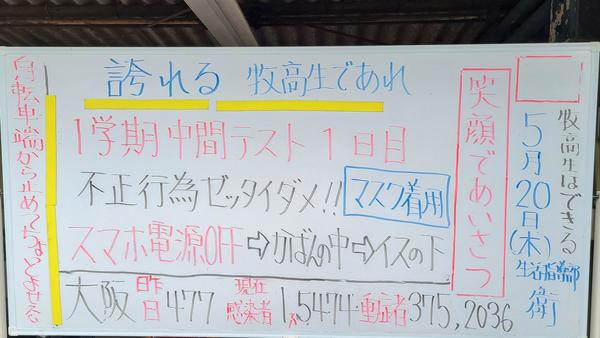 牧高生はできる
5月20日(木)
生活指導部
衛
笑顔であいさつ
誇れる 牧高生であれ
1学期中間テスト1日目
不正行為ゼッタイダメ!!
マスク着用
スマホ電源OFF⇨かばんの中⇨イスの下
大阪 昨日477 現在感染者1万5474 重症者375,2036
自転車端から止めて